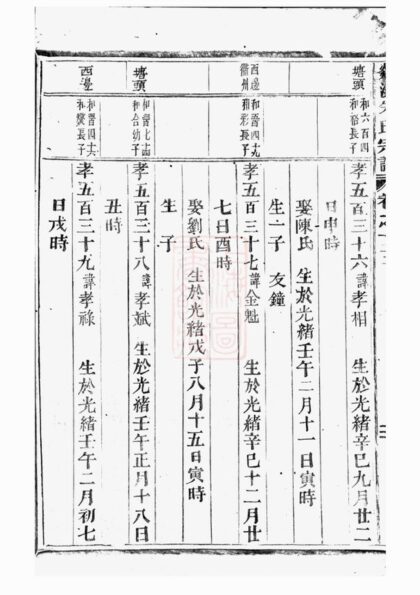 氏宗譜
塘頭
和六百四
和裕長子
孝五百三十六諱孝相 生於光緒辛巳九月廿二
日申時
娶陳氏 生於光緒壬午二月十一日寅時
生一子 友鐘
西邊
衢州
孝五百三十七諱金魁 生於光緒辛巳十二月廿
七日酉時
娶劉氏 生於光緒戊子八月十五日寅時
生 子
塘頭
和合幼子
孝五百三十八諱孝斌 生於光緒壬午正月十八日
丑時
西邊
孝五百三十九諱孝祿 生於光緒壬午二月初七
日戌時